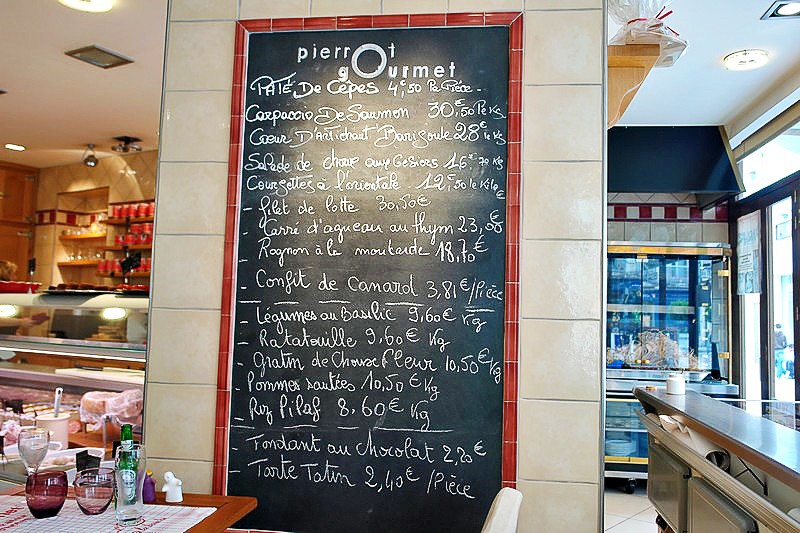 pierrot
gourmet
PATÉ De Cèpes 4€50 La Pièce -
Carpaccio De Saumon 30€,50 Le Kg
Cœur D'Artichaut Barigoule 28€ le Kg
Salade de choux aux Gesiers 16€
Courgettes à l'orientale . 12€,50 le Kilo
- filet de lotte 30,50€
- Carré d'agneau au thym 23,00€
- Rognon à la moutarde 18,70€
- Confit de Canard 3,81€/Pièce
- Légumes au Basilic 9,60€ Kg
- Ratatouille 9,60€ Kg
- Gratin de Choux Fleur 10,50€ Kg
- Pommes sautées 10,50€ Kg
- Riz Pilaf 8,60€ Kg
- Fondant au Chocolat 2,20€
- Tarte Tatin 2,40€ /Pièce